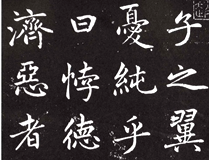 子之翼
憂純乎
曰悖德
濟惡者